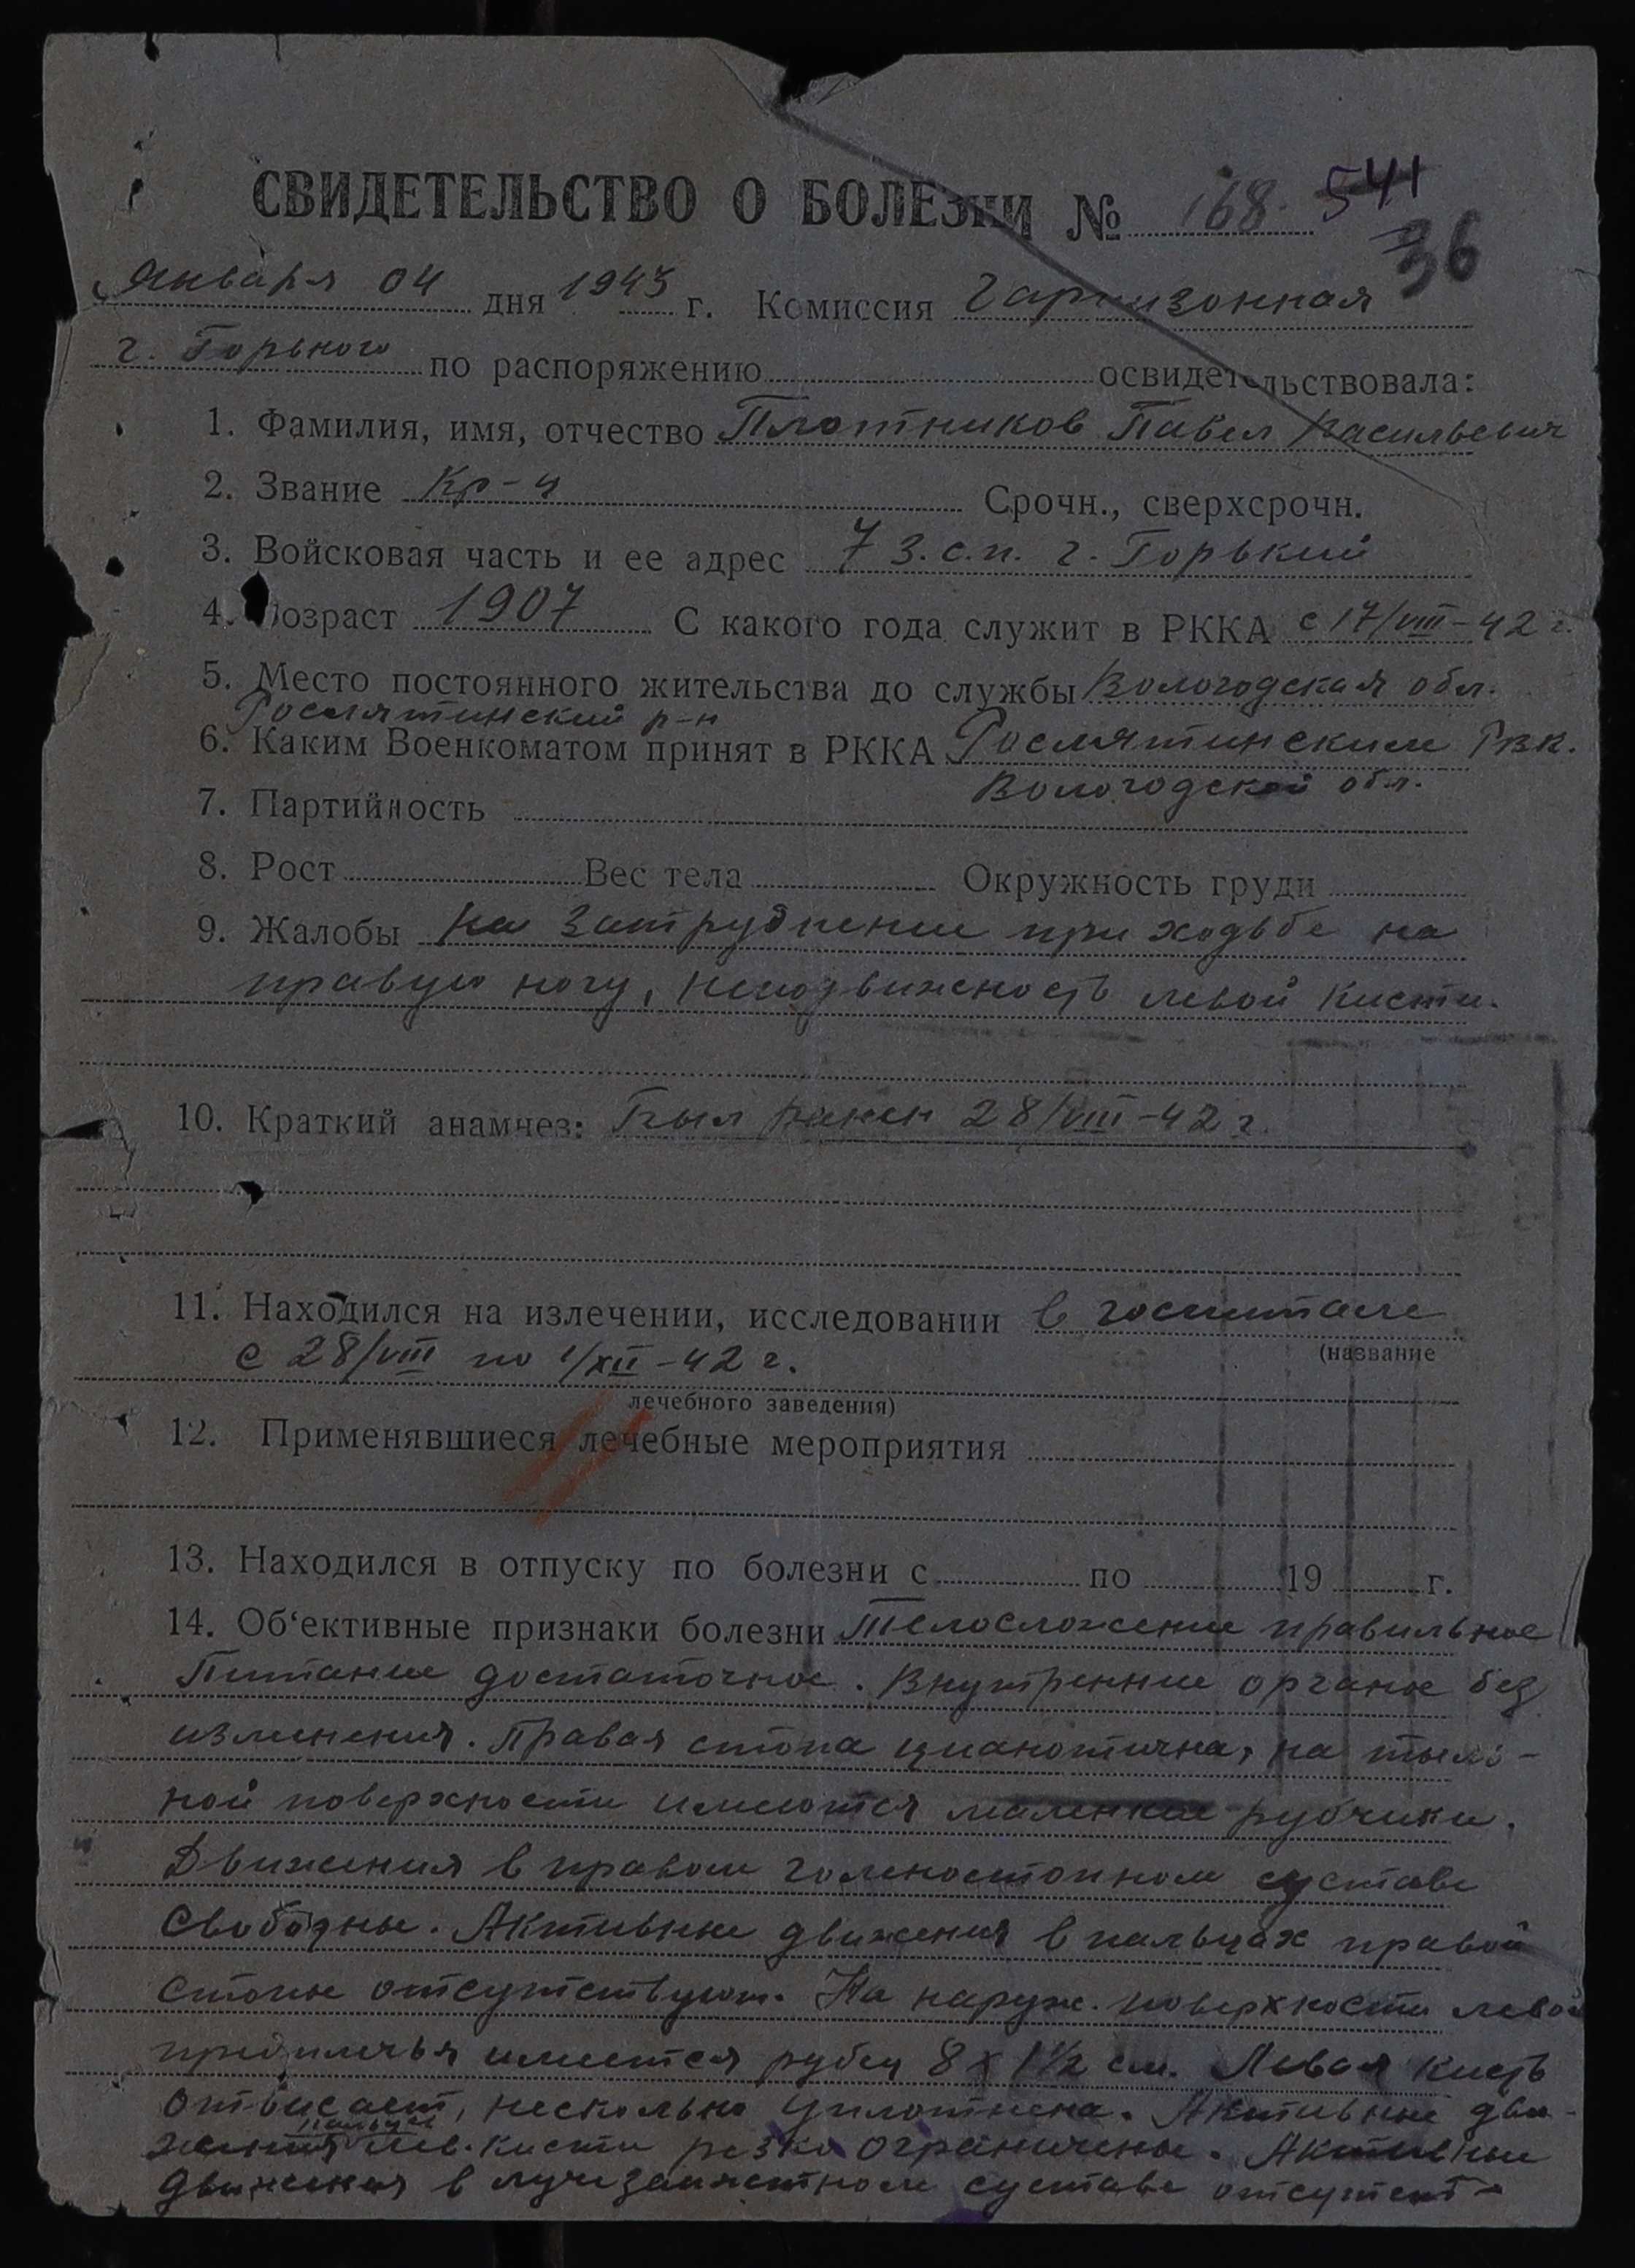 СВИДЕТЕЛЬСТВО О БОЛЕЗНИ № 168. 541
36
Января 04 дня 1943 г. Комиссия Гарнизонная
г. Горького по распоряжению освидетельствовала:
1. Фамилия, имя, отчество Плотников Павел Васильевич
2. Звание Кр-ц Срочн., сверхсрочн.
3. Войсковая часть и ее адрес 7 з.с.п. г. Горький
4. Возраст 1907 С какого года служит в РККА с 17/VIII-42 г.
5. Место постоянного жительства до службы Вологодская обл.
Рослятинский р-н
6. Каким Военкоматом принят в РККА Рослятинским Рвк.
Вологодской обл.
7. Партийность
8. Рост Вес тела Окружность груди
9. Жалобы на затруднение при ходьбе на
правую ногу, неподвижность левой кисти.
10. Краткий анамнез: Был ранен 28/VIII-42 г.
11. Находился на излечении, исследовании в госпитале
(название
с 28/VIII по 1/XII-42 г.
лечебного заведения)
12. Применявшиеся лечебные мероприятия
13. Находился в отпуску по болезни с по 19 г.
14. Об‘ективные признаки болезни Телосложение правильное
Питание достаточное. Внутренние органы без
изменения. Правая стопа цианотична, на тыль-
ной поверхности имеются маленькие рубчики.
Движения в правом голеностопном суставе
свободны. Активные движения в пальцах правой
стопы отсутствуют. На наруж. поверхности левой
предплечья имеется рубец 8 х 1 1/2 см. Левая кисть
отвисает, несколько уплотнена. Активные дви-
пальцев
жения лев. кисти резко ограничены. Активные
движения в лучезапястном суставе отсутст-